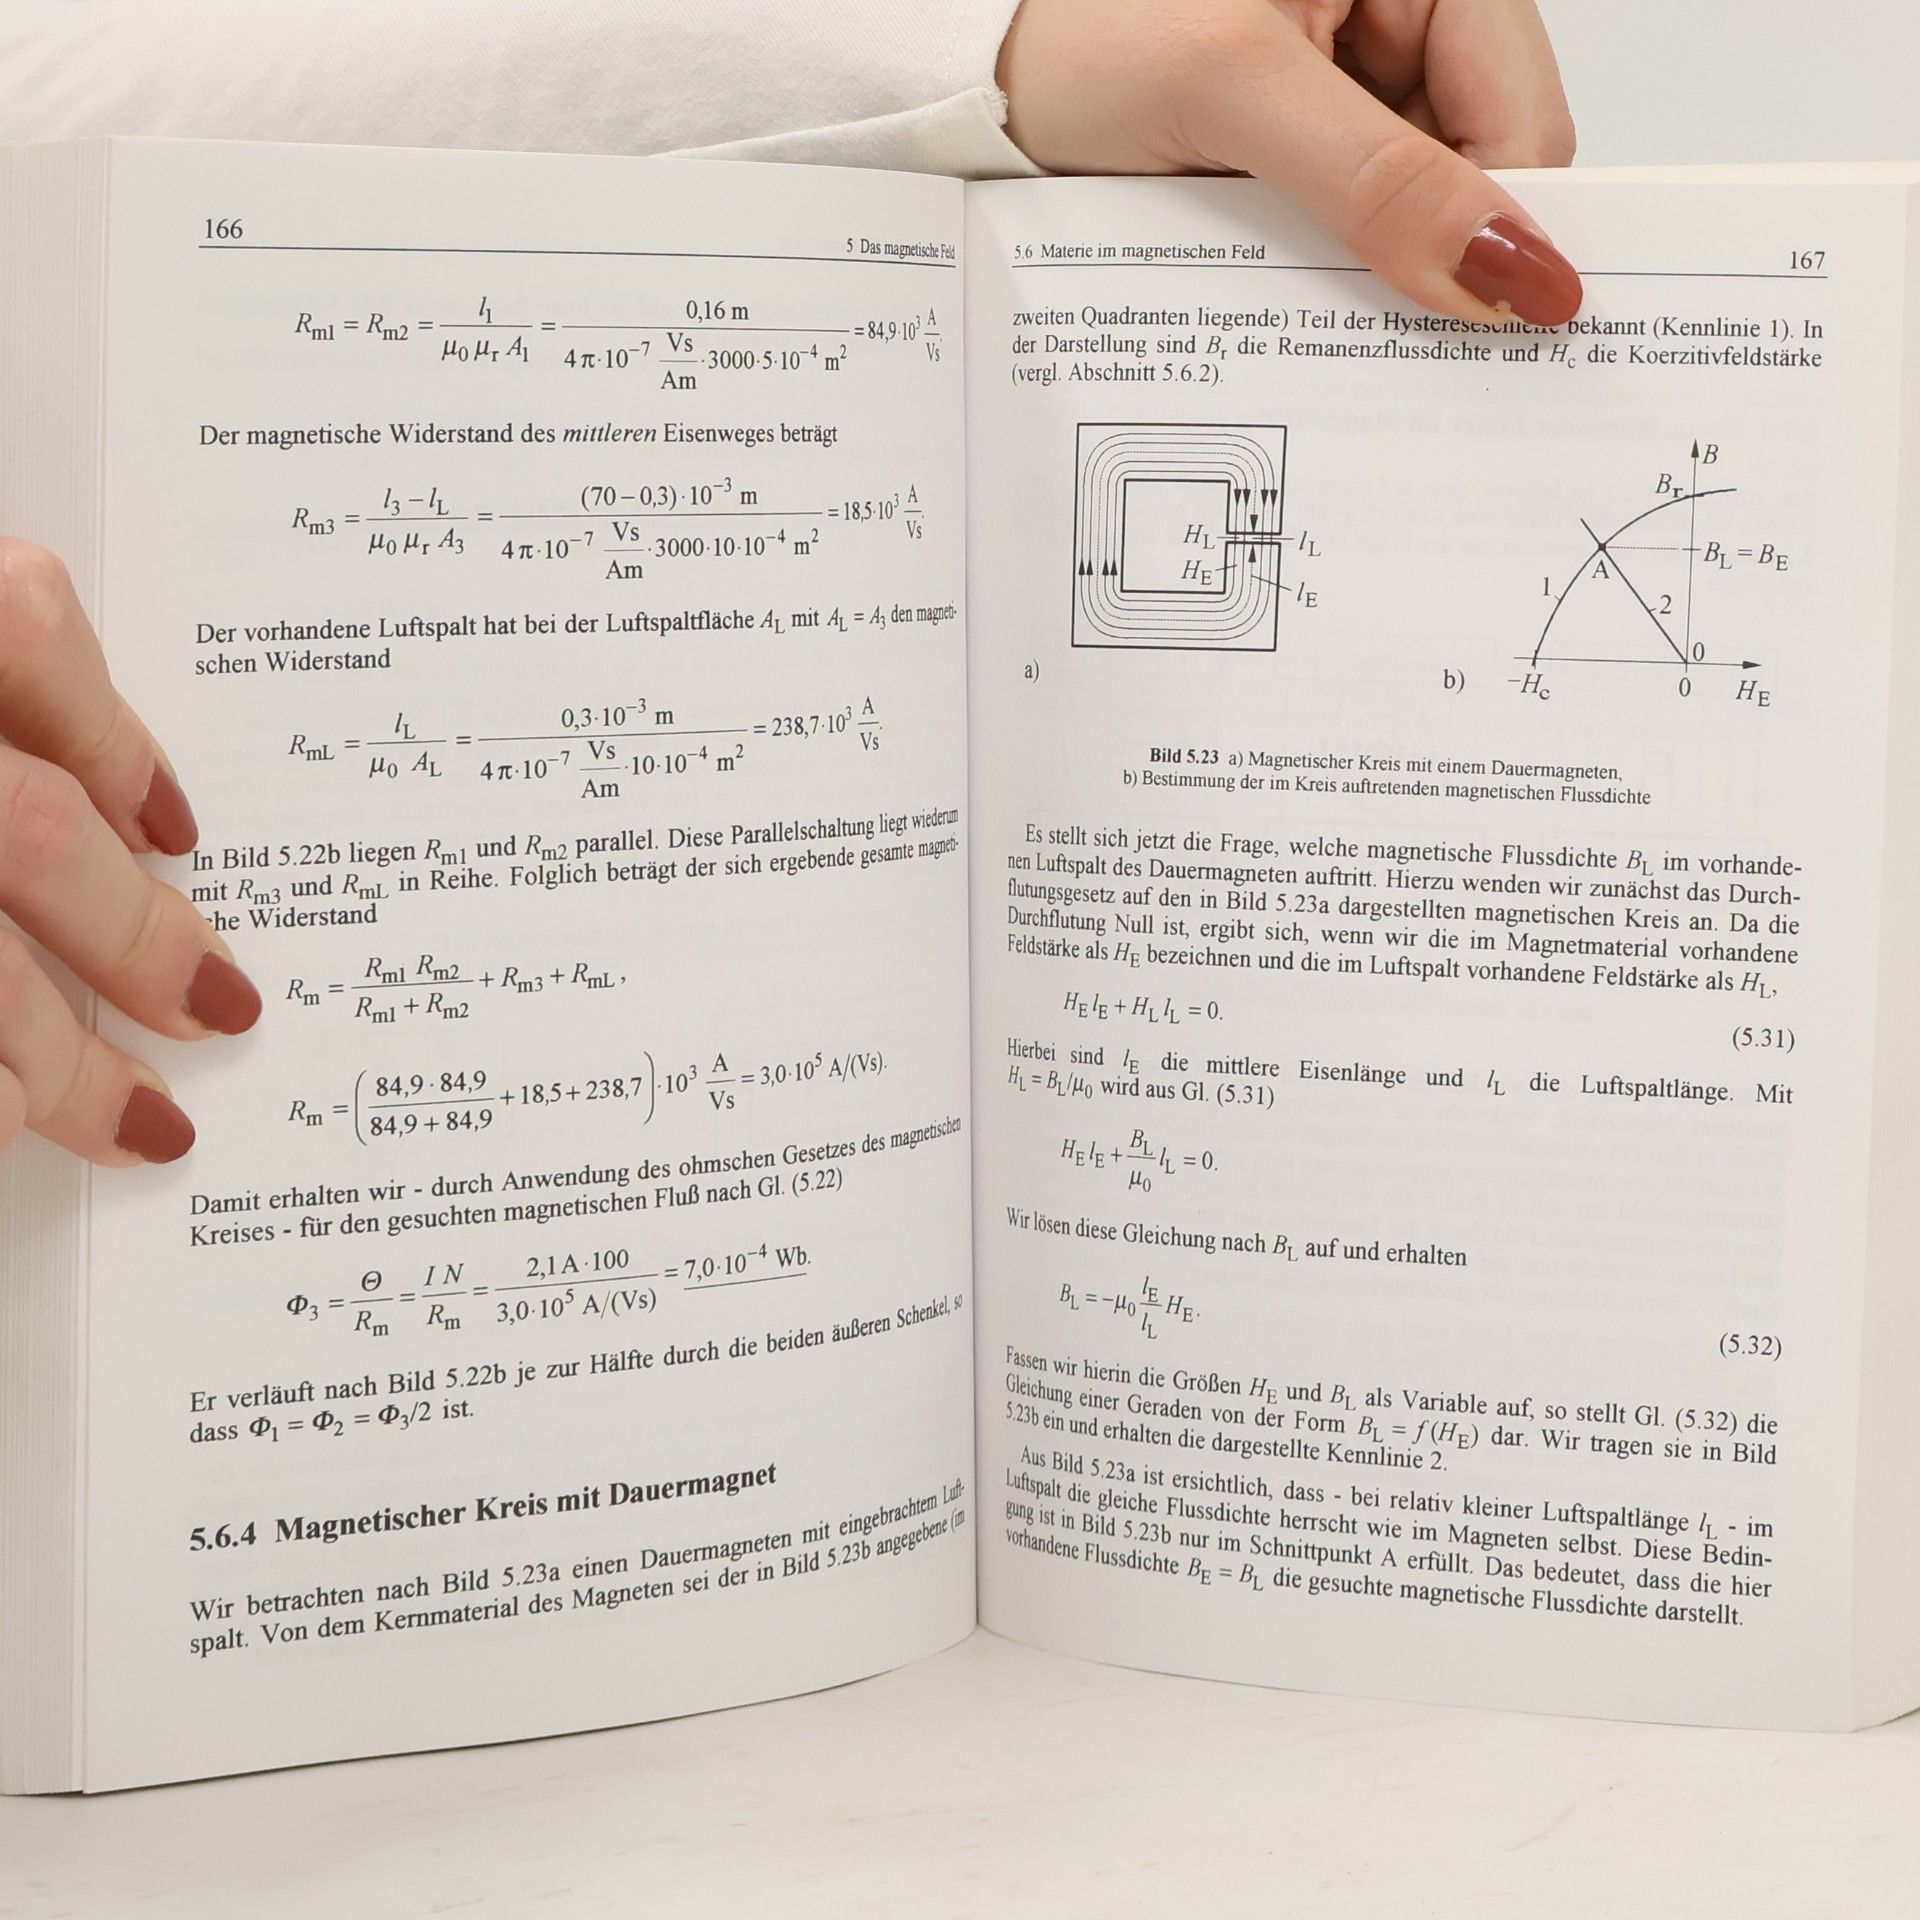 166
5 Das magnetische Feld
Rm1 = Rm2 = l1 / (μ0 μr A1) = 0,16 m / (4 π·10⁻⁷ Vs/Am ·3000·5·10⁻⁴ m²) = 84,9·10³ A/Vs.
Der magnetische Widerstand des mittleren Eisenweges beträgt
Rm3 = (l3 – lL) / (μ0 μr A3) = (70 – 0,3)·10⁻³ m / (4 π·10⁻⁷ Vs/Am ·3000·10·10⁻⁴ m²) = 18,5·10³ A/Vs.
Der vorhandene Luftspalt hat bei der Luftspaltfläche AL mit AL = A3 den magneti-
schen Widerstand
RmL = lL / (μ0 AL) = 0,3·10⁻³ m / (4 π·10⁻⁷ Vs/Am ·10·10⁻⁴ m²) = 238,7·10³ A/Vs.
In Bild 5.22b liegen Rm1 und Rm2 parallel. Diese Parallelschaltung liegt wiederum
mit Rm3 und RmL in Reihe. Folglich beträgt der sich ergebende gesamte magneti-
che Widerstand
Rm = Rm1 Rm2 / (Rm1 + Rm2) + Rm3 + RmL ,
Rm = (84,9 · 84,9 / (84,9 + 84,9) + 18,5 + 238,7)·10³ A/Vs = 3,0·10⁵ A/(Vs).
Damit erhalten wir - durch Anwendung des ohmschen Gesetzes des magnetischen
Kreises - für den gesuchten magnetischen Fluß nach Gl. (5.22)
Φ3 = Θ / Rm = I N / Rm = 2,1 A·100 / (3,0·10⁵ A/(Vs)) = 7,0·10⁻⁴ Wb.
Er verläuft nach Bild 5.22b je zur Hälfte durch die beiden äußeren Schenkel, so
dass Φ1 = Φ2 = Φ3/2 ist.
5.6.4 Magnetischer Kreis mit Dauermagnet
Wir betrachten nach Bild 5.23a einen Dauermagneten mit eingebrachtem Luft-
spalt. Von dem Kernmaterial des Magneten sei der in Bild 5.23b angegebene (im
5.6 Materie im magnetischen Feld
167
zweiten Quadranten liegende) Teil der Hystereseschleife bekannt (Kennlinie 1). In
der Darstellung sind Br die Remanenzflussdichte und Hc die Koerzitivfeldstärke
(vergl. Abschnitt 5.6.2).
HL
HE
lL
lE
a)
B
Br
BL = BE
A
1
2
0
b)
–Hc
0
HE
Bild 5.23 a) Magnetischer Kreis mit einem Dauermagneten,
b) Bestimmung der im Kreis auftretenden magnetischen Flussdichte
Es stellt sich jetzt die Frage, welche magnetische Flussdichte BL im vorhande-
nen Luftspalt des Dauermagneten auftritt. Hierzu wenden wir zunächst das Durch-
flutungsgesetz auf den in Bild 5.23a dargestellten magnetischen Kreis an. Da die
Durchflutung Null ist, ergibt sich, wenn wir die im Magnetmaterial vorhandene
Feldstärke als HE bezeichnen und die im Luftspalt vorhandene Feldstärke als HL,
HE lE + HL lL = 0.
(5.31)
Hierbei sind lE die mittlere Eisenlänge und lL die Luftspaltlänge. Mit
HL = BL/μ0 wird aus Gl. (5.31)
HE lE + BL/μ0 lL = 0.
Wir lösen diese Gleichung nach BL auf und erhalten
BL = –μ0 lE/lL HE.
(5.32)
Fassen wir hierin die Größen HE und BL als Variable auf, so stellt Gl. (5.32) die
Gleichung einer Geraden von der Form BL = f (HE) dar. Wir tragen sie in Bild
5.23b ein und erhalten die dargestellte Kennlinie 2.
Aus Bild 5.23a ist ersichtlich, dass - bei relativ kleiner Luftspaltlänge lL - im
Luftspalt die gleiche Flussdichte herrscht wie im Magneten selbst. Diese Bedin-
gung ist in Bild 5.23b nur im Schnittpunkt A erfüllt. Das bedeutet, dass die hier
vorhandene Flussdichte BE = BL die gesuchte magnetische Flussdichte darstellt.